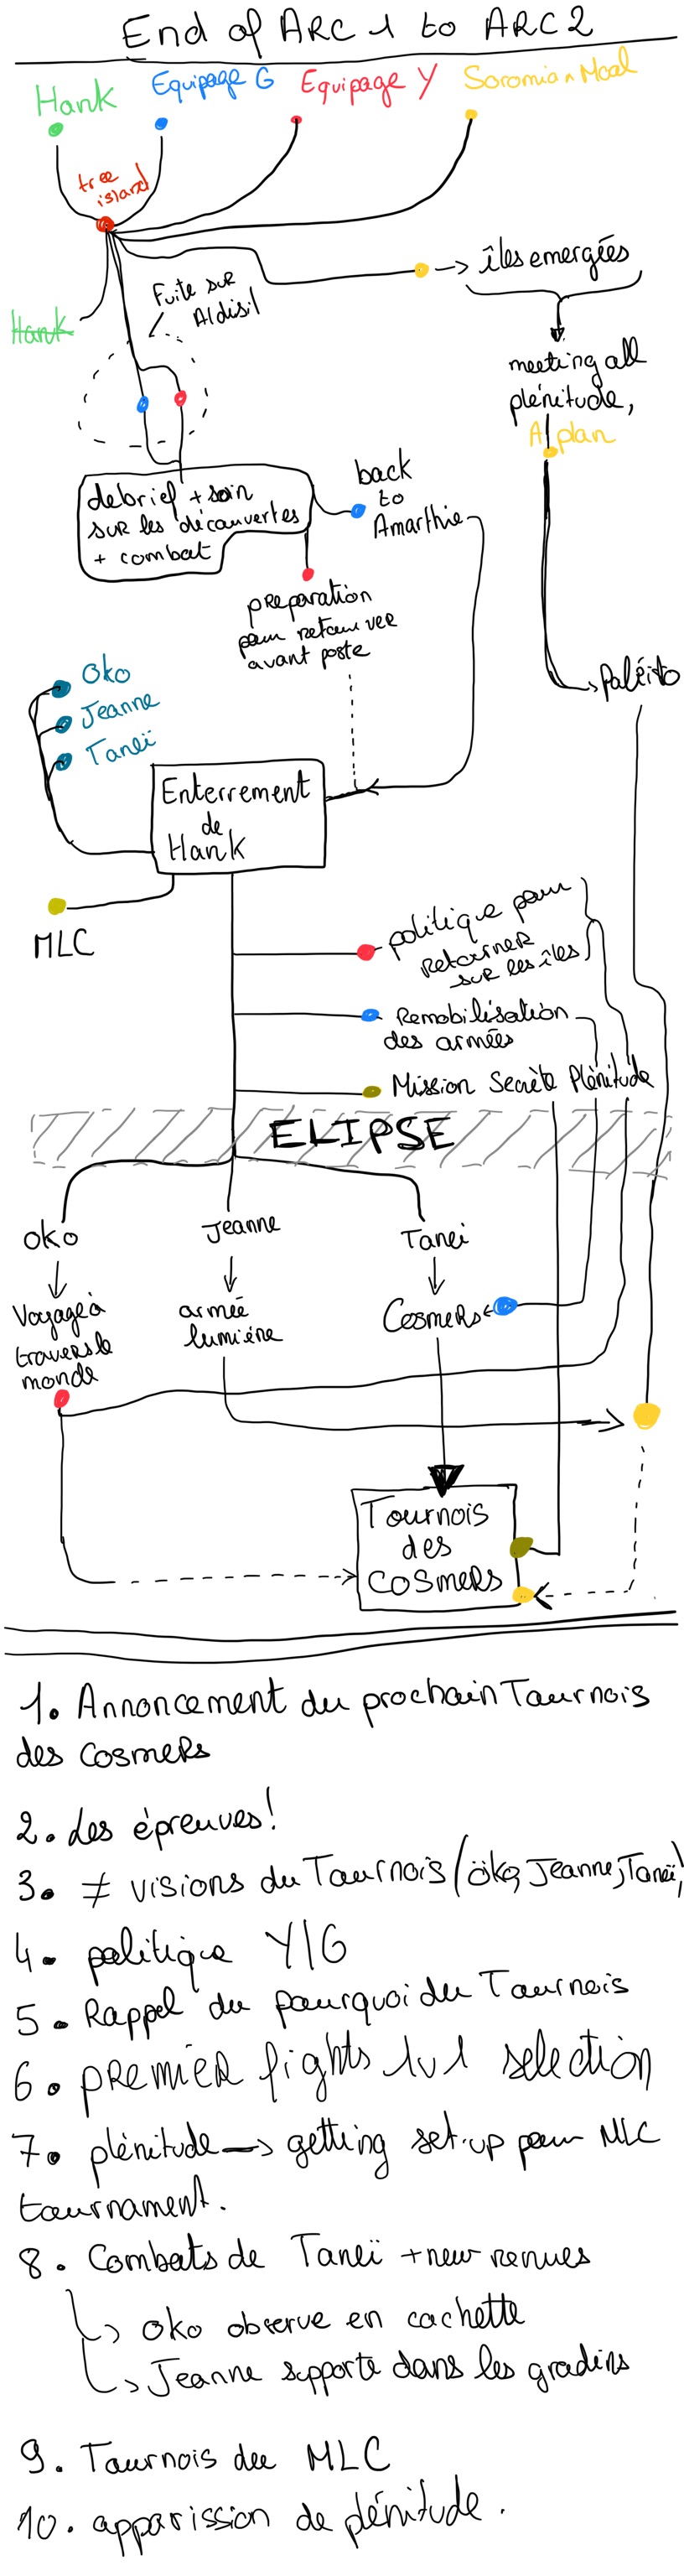 End of ARC 1 to ARC 2
Hank
Equipage G
Equipage Y
Soromian Moal
tree
island
îles emergées
Fuite sur
Aldisil
Hank
meeting all
plénitude,
A plan
debrief + soin
sur les découvertes
+ combat
back
to
Amarthie
preparation
pour retourver
avant poste
Paléito
Oko
Jeanne
Taneï
Enterrement
de
Hank
MLC
politique pour
retourner
sur les îles
Remobilisation
des armées
Mission Secrète Plénitude
ELIPSE
Oko
Jeanne
Tanei
Voyage à
travers le
monde
armée
lumière
Cosmers
Tournois
des
cosmers
1. Annoncement du prochain Tournois
des Cosmers
2. Les épreuves!
3. ≠ visions du Tournois (öko, Jeanne, Taneï)
4. politique Y/G
5. Rappel du pourquoi du Tournois
6. premier fights 1v1 selection
7. plénitude -> getting set-up pour MLC
tournament.
8. Combats de Taneï + new venues
-> Oko observe en cachette
-> Jeanne supporte dans les gradins
9. Tournois du MLC
10. apparission de plénitude.